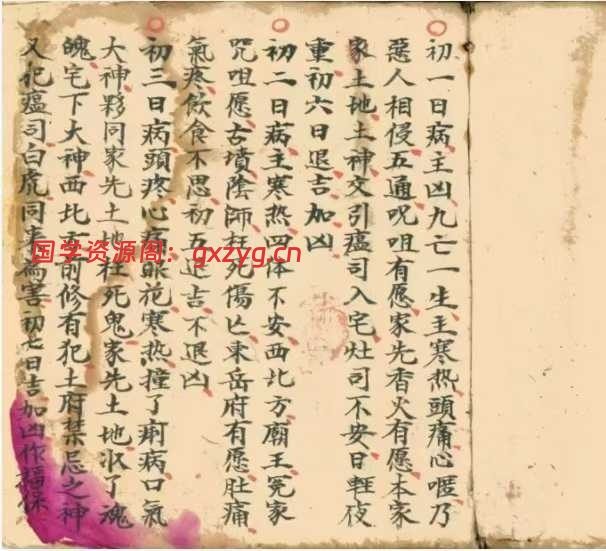 初一日病主凶九亡一生主寒热頭痛心𢜶乃
惡人相侵五通呪咀有愿家先香火有愿本家
家土地土神交引瘟司入宅灶司不安日輕夜
重初六日退吉加凶
初二日病主寒热四体不安西北方廟王冤家
咒咀愿古墳陰師枉死傷亡東岳府有愿肚痛
氣疼飲食不思初五退吉不退凶
初三日病頭疼心痛眼花寒热撞了痢病口氣
大神夥同家先土地枉死鬼家先土地収了魂
魄宅下大神西北方前修有犯土府禁忌之神
又犯瘟司白虎同来為害初七日吉加凶作福保
国学资源阁：gxzyg.cn